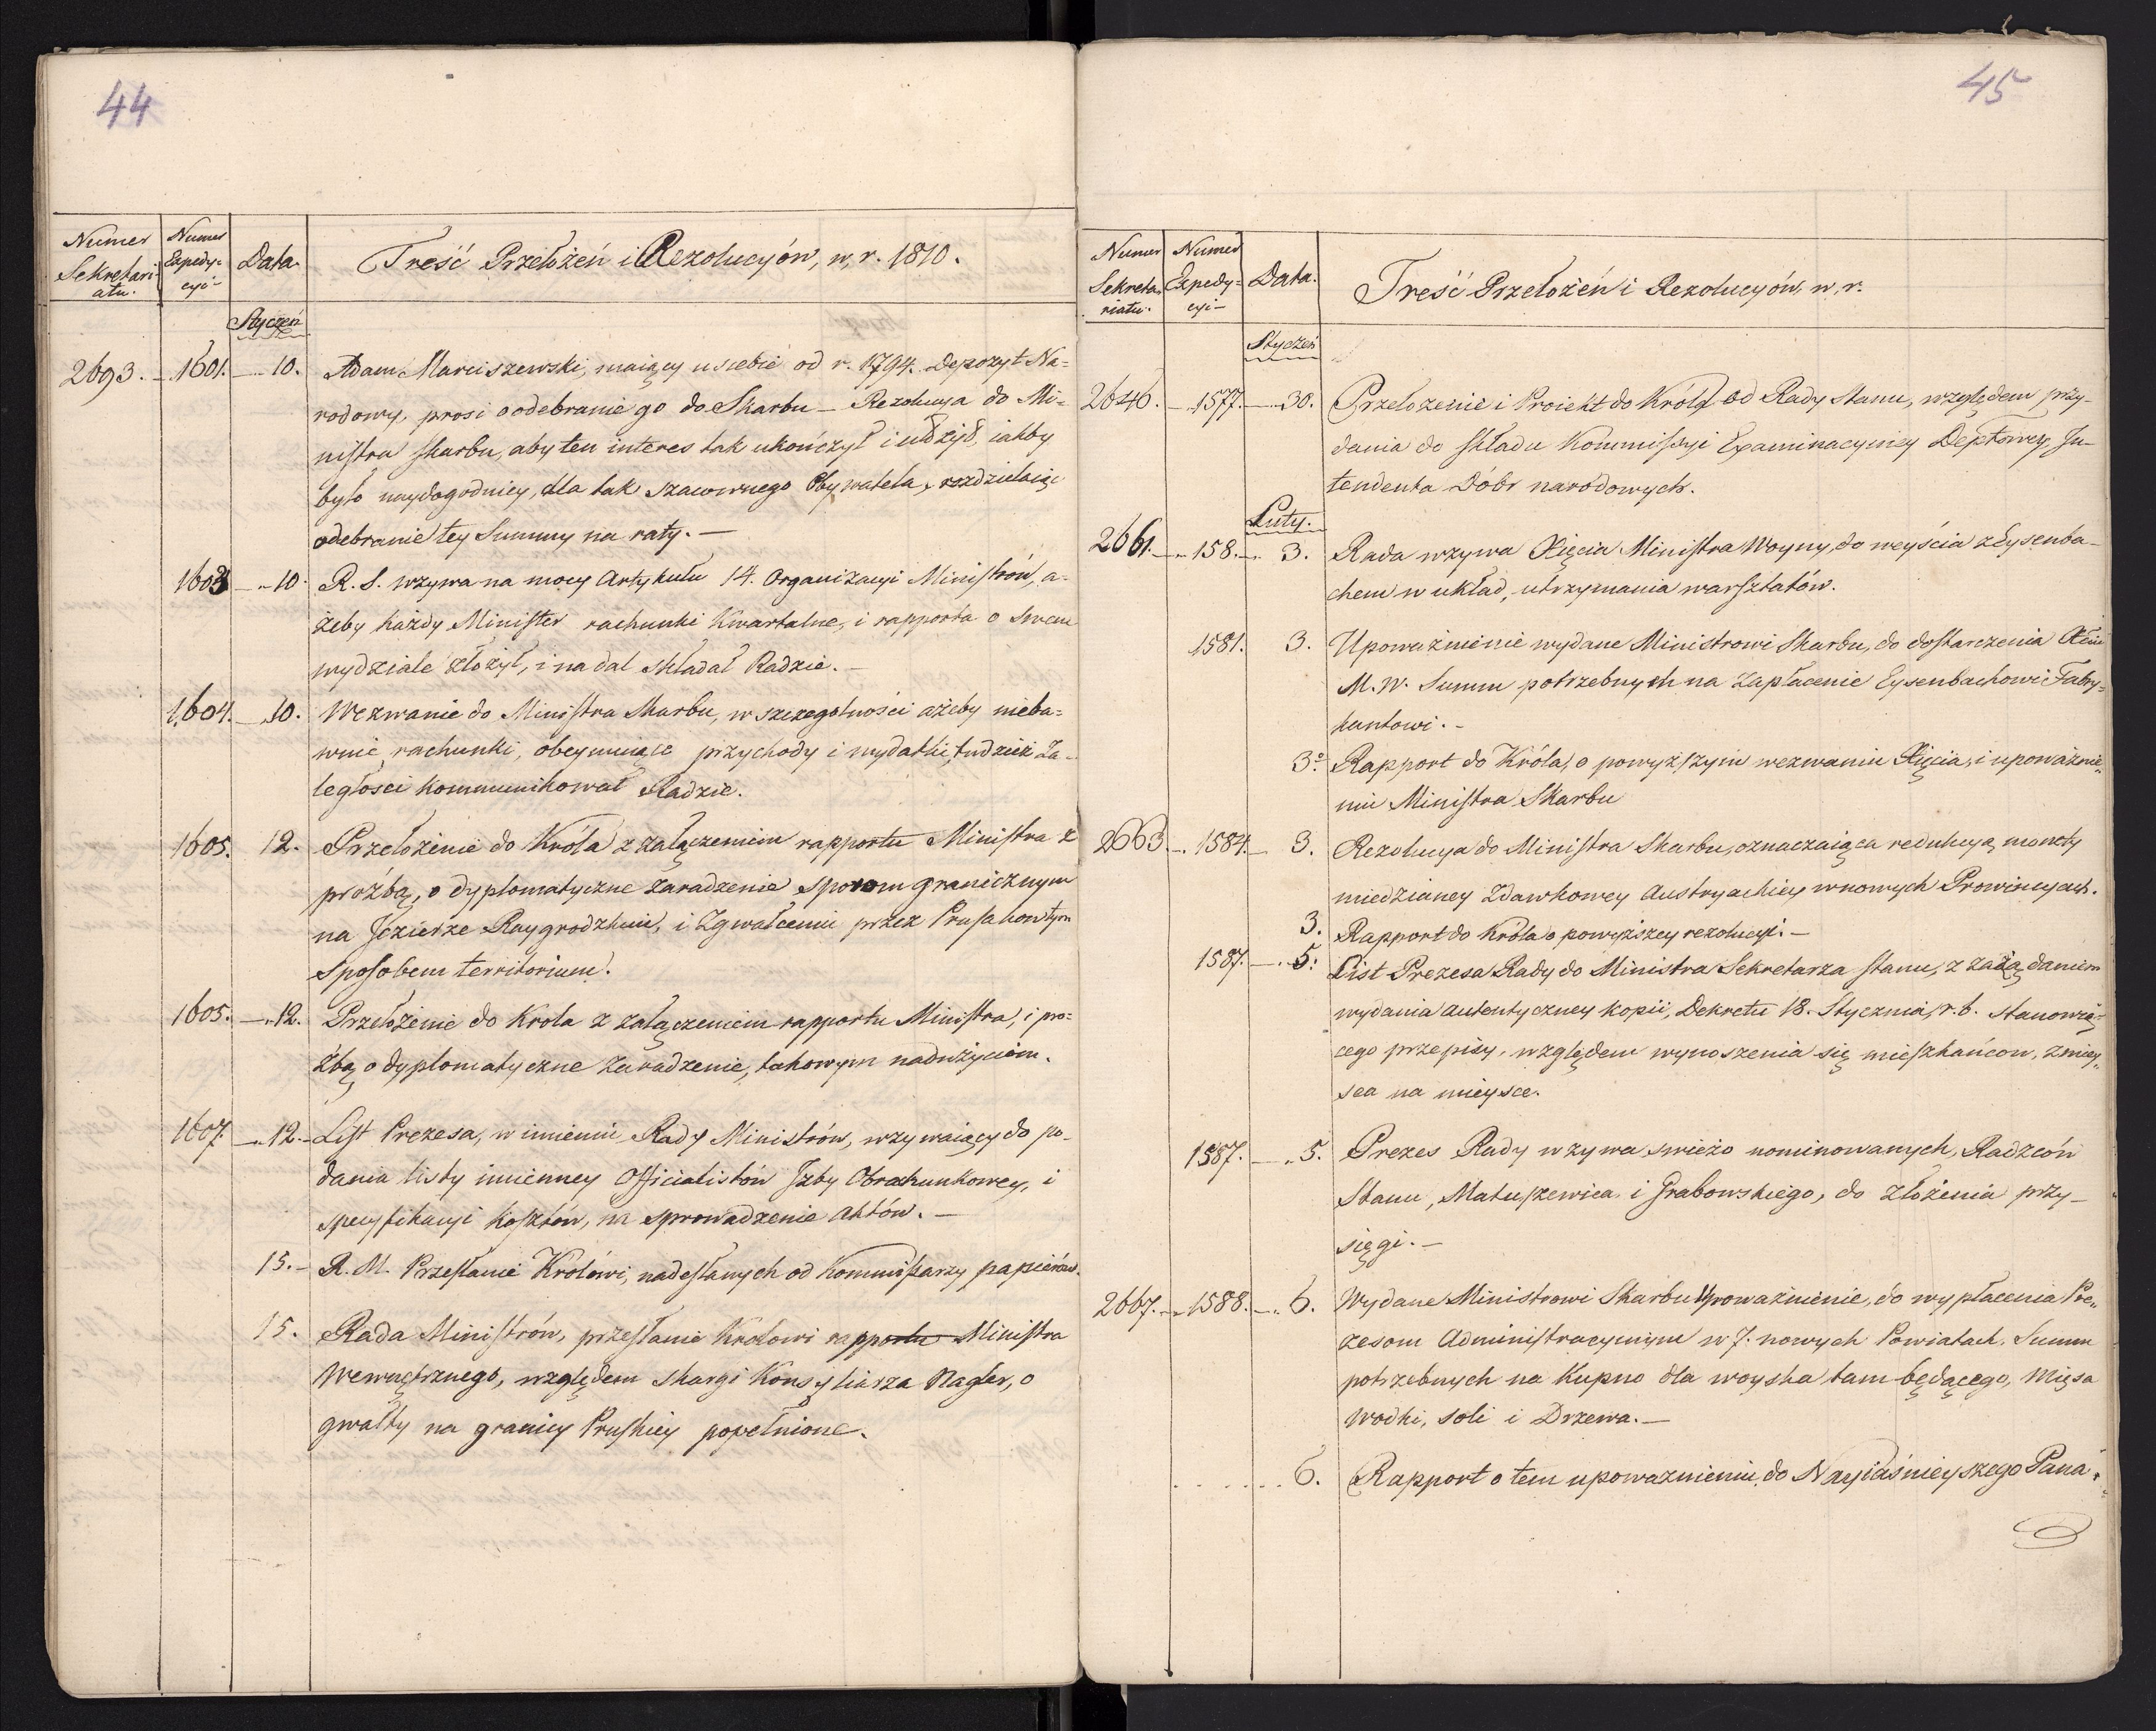 44
Numer Sekretari atu.
Numer Expedy= cyi-
Data.
Treść Przełożeń i Rezolucyów, w, r. 1810.
Styczeń
2693. - 1601. - 10. Adam Marciszewski, maiący u siebie od r. 1794. Depozyt Na=
rodowy, prosi o odebranie go do Skarbu - Rezolucya do Mi=
nistra skarbu, aby ten interes tak ukończył i , iakby
było naydogodniey, dla tak szacownego Obywatela, rozdzielaiąc
odebranie tey Summy na raty. -
1603 - 10. R. S. wzywa na mocy Artykułu 14. Organizacyi Ministrów, a=
żeby każdy Minister rachunki Kwartalne, i rapporta o swem
wydziale złożył, i na dal składał Radzie. -
1604. - 10. Wezwanie do Ministra Skarbu, w szczegolności ażeby nieba=
wnie rachunki, obeymuiące przychody i wydatki, tudzież Za=
ległości kommunikował Radzie.
1605. 12. Przełożenie do Króla z załączeniem rapportu Ministra z
proźbą, o dyplomatyczne zaradzenie sporom granicznym
na Jezierze Raygrodzkim, i Zgwałceniu przez Prusakow tym
sposobem territorium.
1605. - 12. Przełożenie do Krola z załączeniem rapportu Ministra, i pro=
źbą o dyplomatyczne zaradzenie, takowym nadużyciom.
1607. - 12. - List Prezesa, w imieniu Rady Ministrów, wzywaiący do po-
dania listy imienney Officialistów Jzby Obrachunkowey, i
specyfikacyi kosztów, na sprowadzenie Aktów. -
15. - R. M. Przesłanie Królowi, nadesłanych od Kommissarzy papierów.
15. Rada Ministrów, przesłanie Krolowi rapportu Ministra
Wewnętrznego, względem skargi Konsyliarza Nagler, o
gwałty na granicy Pruskiey popełnione.
45
Numer Sekreta riatu.
Numer Expedy= cyi-
Data.
Treść Przełożeń i Rezolucyów, w, r.
Styczeń
2646. - 1577. - 30. Przełozenie i Proiekt do Króla od Rady Stanu, względem przy-
dania do składu Kommissyi Examinacyiney Deptowey, Jn-
tendenta Dóbr narodowych.
Luty.
2661. - 158. - 3. Rada wzywa Xięcia Ministra Woyny, do weyścia z Eysenba-
chem w układ, utrzymania warsztatów.
1581. 3. Upoważnienie wydane Ministrowi Skarbu, do dostarczenia
M. W. Summ potrzebnych na zapłacenie Eysenbachowi Fabry=
kantowi. -
3. Rapport do Króla, o powyższym wezwaniu Xięcia, i upoważnie„
niu Ministra Skarbu
2663. - 1584. - 3. Rezolucya do Ministra Skarbu, oznaczaiąca redukcyą monety
miedzianey Zdawkowey Austryackiey w nowych Prowincyach.
3. Rapport do Króla o powyższey rezolucyi. -
1587. - 5. List Prezesa Rady do Ministra Sekretarza stanu, z zażądaniem
wydania autentyczney kopii, Dekretu 18. Stycznia, r. b. stanowią=
cego przepisy, względem wynoszenia się mieszkańcow, z miey„
sca na mieysce.
1587. - 5. Prezes Rady wzywa swieżo nominowanych, Radzców
Stanu, Matuszewica i Grabowskiego, do złożenia przy-
sięgi. -
2667. - 1588. - 6. Wydane Ministrowi Skarbu Upoważnienie, do wypłacenia Pre„
zesom Administracyinym w 7. nowych Powiatach, Summ
potrzebnych na kupno dla woyska tam będącego, Mięsa
Wodki, soli i Drzewa. -
6. Rapport o tem upoważnieniu, do Nayiaśnieyszego Pana.